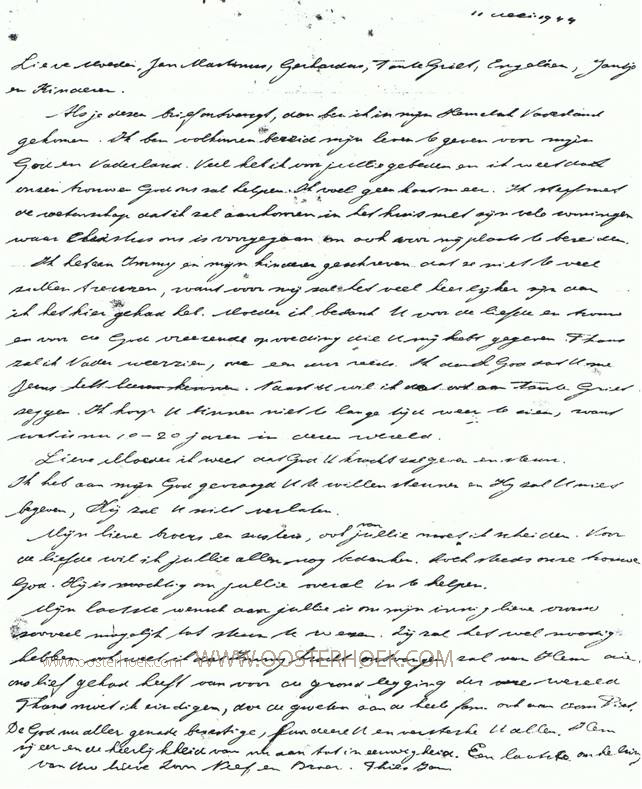 11 mei 1944
Lieve Moeder, Jan Martinus, Gerhardus, Tante Griet, Engelien, Jantje
en Kinderen.
Als je dezen brief ontvangt, dan ben ik in mijn Hemelsch Vaderland
gekomen. Ik ben volkomen bereid mijn leven te geven voor mijn
God en Vaderland. Veel heb ik voor jullie gebeden en ik weet dat
onzen trouwen God ons zal helpen. Ik voel geen haat meer. Ik sterf met
de wetenschap dat ik zal aankomen in het huis met zijn vele woningen
waar Christus ons is voorgegaan om ook voor mij plaats te bereiden.
Ik heb aan Immy en mijn kinderen geschreven dat ze niet te veel
zullen treuren, want voor mij zal het veel heerlijker zijn dan
ik het hier gehad heb. Moeder ik bedank U voor de liefde en trouw
en voor de God vreezende opvoeding die U mij hebt gegeven. Thans
zal ik Vader weerzien, over een uur reeds. Ik dank God dat U me
Jezus hebt leeren kennen. Naast U wil ik dat ook aan Tante Griet
zeggen. Ik hoop U binnen niet te lange tijd weer te zien, want
wat is nu 10-20 jaren in deze wereld.
Lieve Moeder ik weet dat God U kracht zal geven en steun.
Ik heb aan mijn God gevraagd U te willen steunen en Hij zal U niet
begeven, Hij zal U niet verlaten.
Mijn lieve broers en zusters, ook van jullie moet ik scheiden. Voor
de liefde wil ik jullie allen nog bedanken. Zoek steeds onze trouwe
God. Hij is machtig om jullie overal in te helpen.
Mijn laatste wensch aan jullie is om mijn innig lieve vrouw
zooveel mogelijk tot steun te wezen. Zij zal het wel noodig
hebben zal van Hem die
www.oosterhoek.com WWW.OOSTERHOEK.COM
ons lief gehad heeft van voor de grondlegging der wereld
Thans moet ik eindigen, doe de groeten aan de heele fam. ook aan oom Piet.
De God nu aller genade bevestige, fundeere U en versterke U allen. Hem
zij eer en de heerlijkheid van nu aan tot in eeuwigheid. Een laatste omhelzing
van Uw lieve Zoon Neef en Broer.